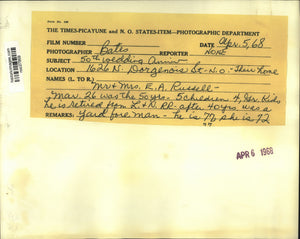 THE TIMES-PICAYUNE and N. O. STATES-ITEM—PHOTOGRAPHIC DEPARTMENT
FILM NUMBER DATE Apr. 5, 68
PHOTOGRAPHER Bates REPORTER NONE
SUBJECT 50th Wedding Anniv
LOCATION 1626 N. Dorgenois St - N.O. - Their Home
NAMES (L TO R)
Mr + Mrs. E. A. Russell -
Mar. 26 was the 50 yrs - 5 children, 4, Gr. Kids
he is retired from L + N. RR. after 40 yrs. was a
REMARKS: Yard fore man - he is 77, she is 72
APR 6 1968